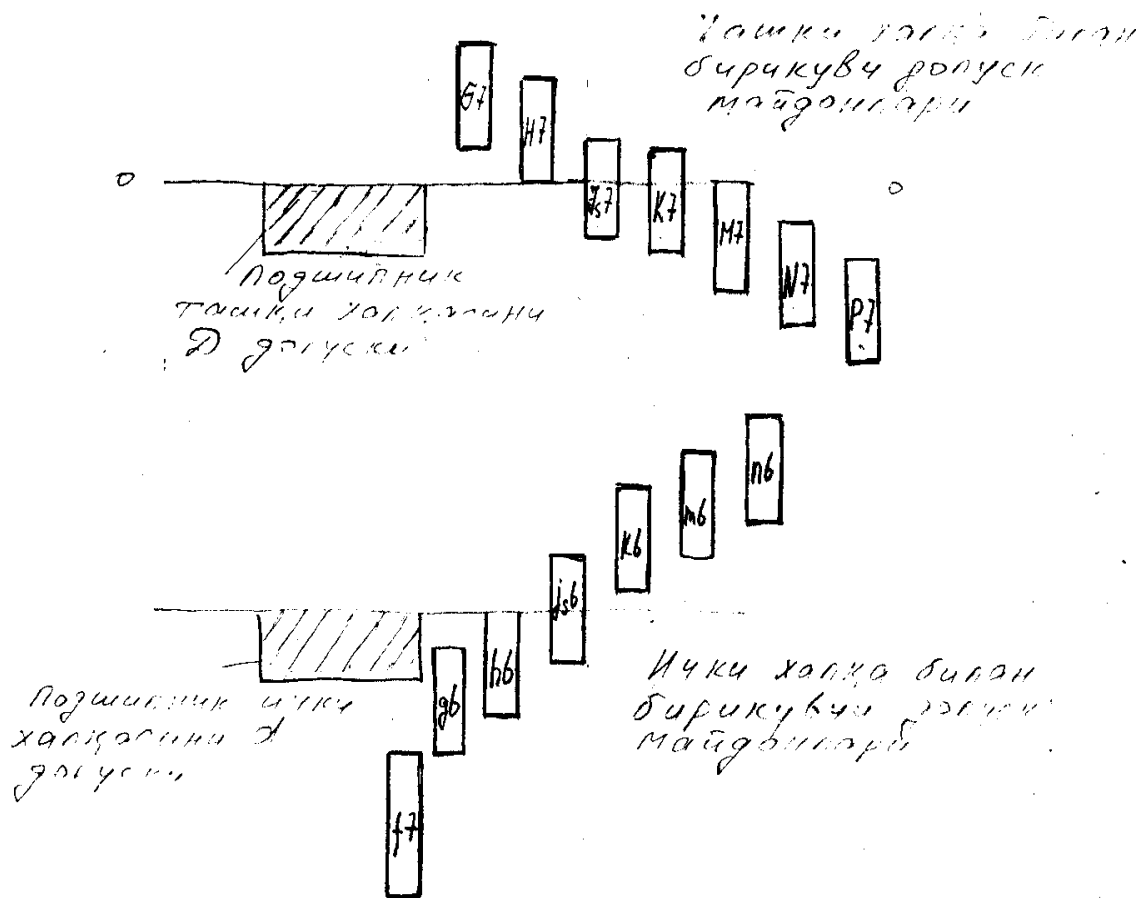 Ташки халқа билан
бирикувчи допуск
майдонлари
G7
H7
Js7
K7
M7
N7
P7
0
0
подшипник
ташки халқасини
D допуски
n6
m6
k6
js6
h6
g6
f7
Ички халқа билан
бирикувчи допуск
майдонлари
подшипник ички
халқасини d
допуски